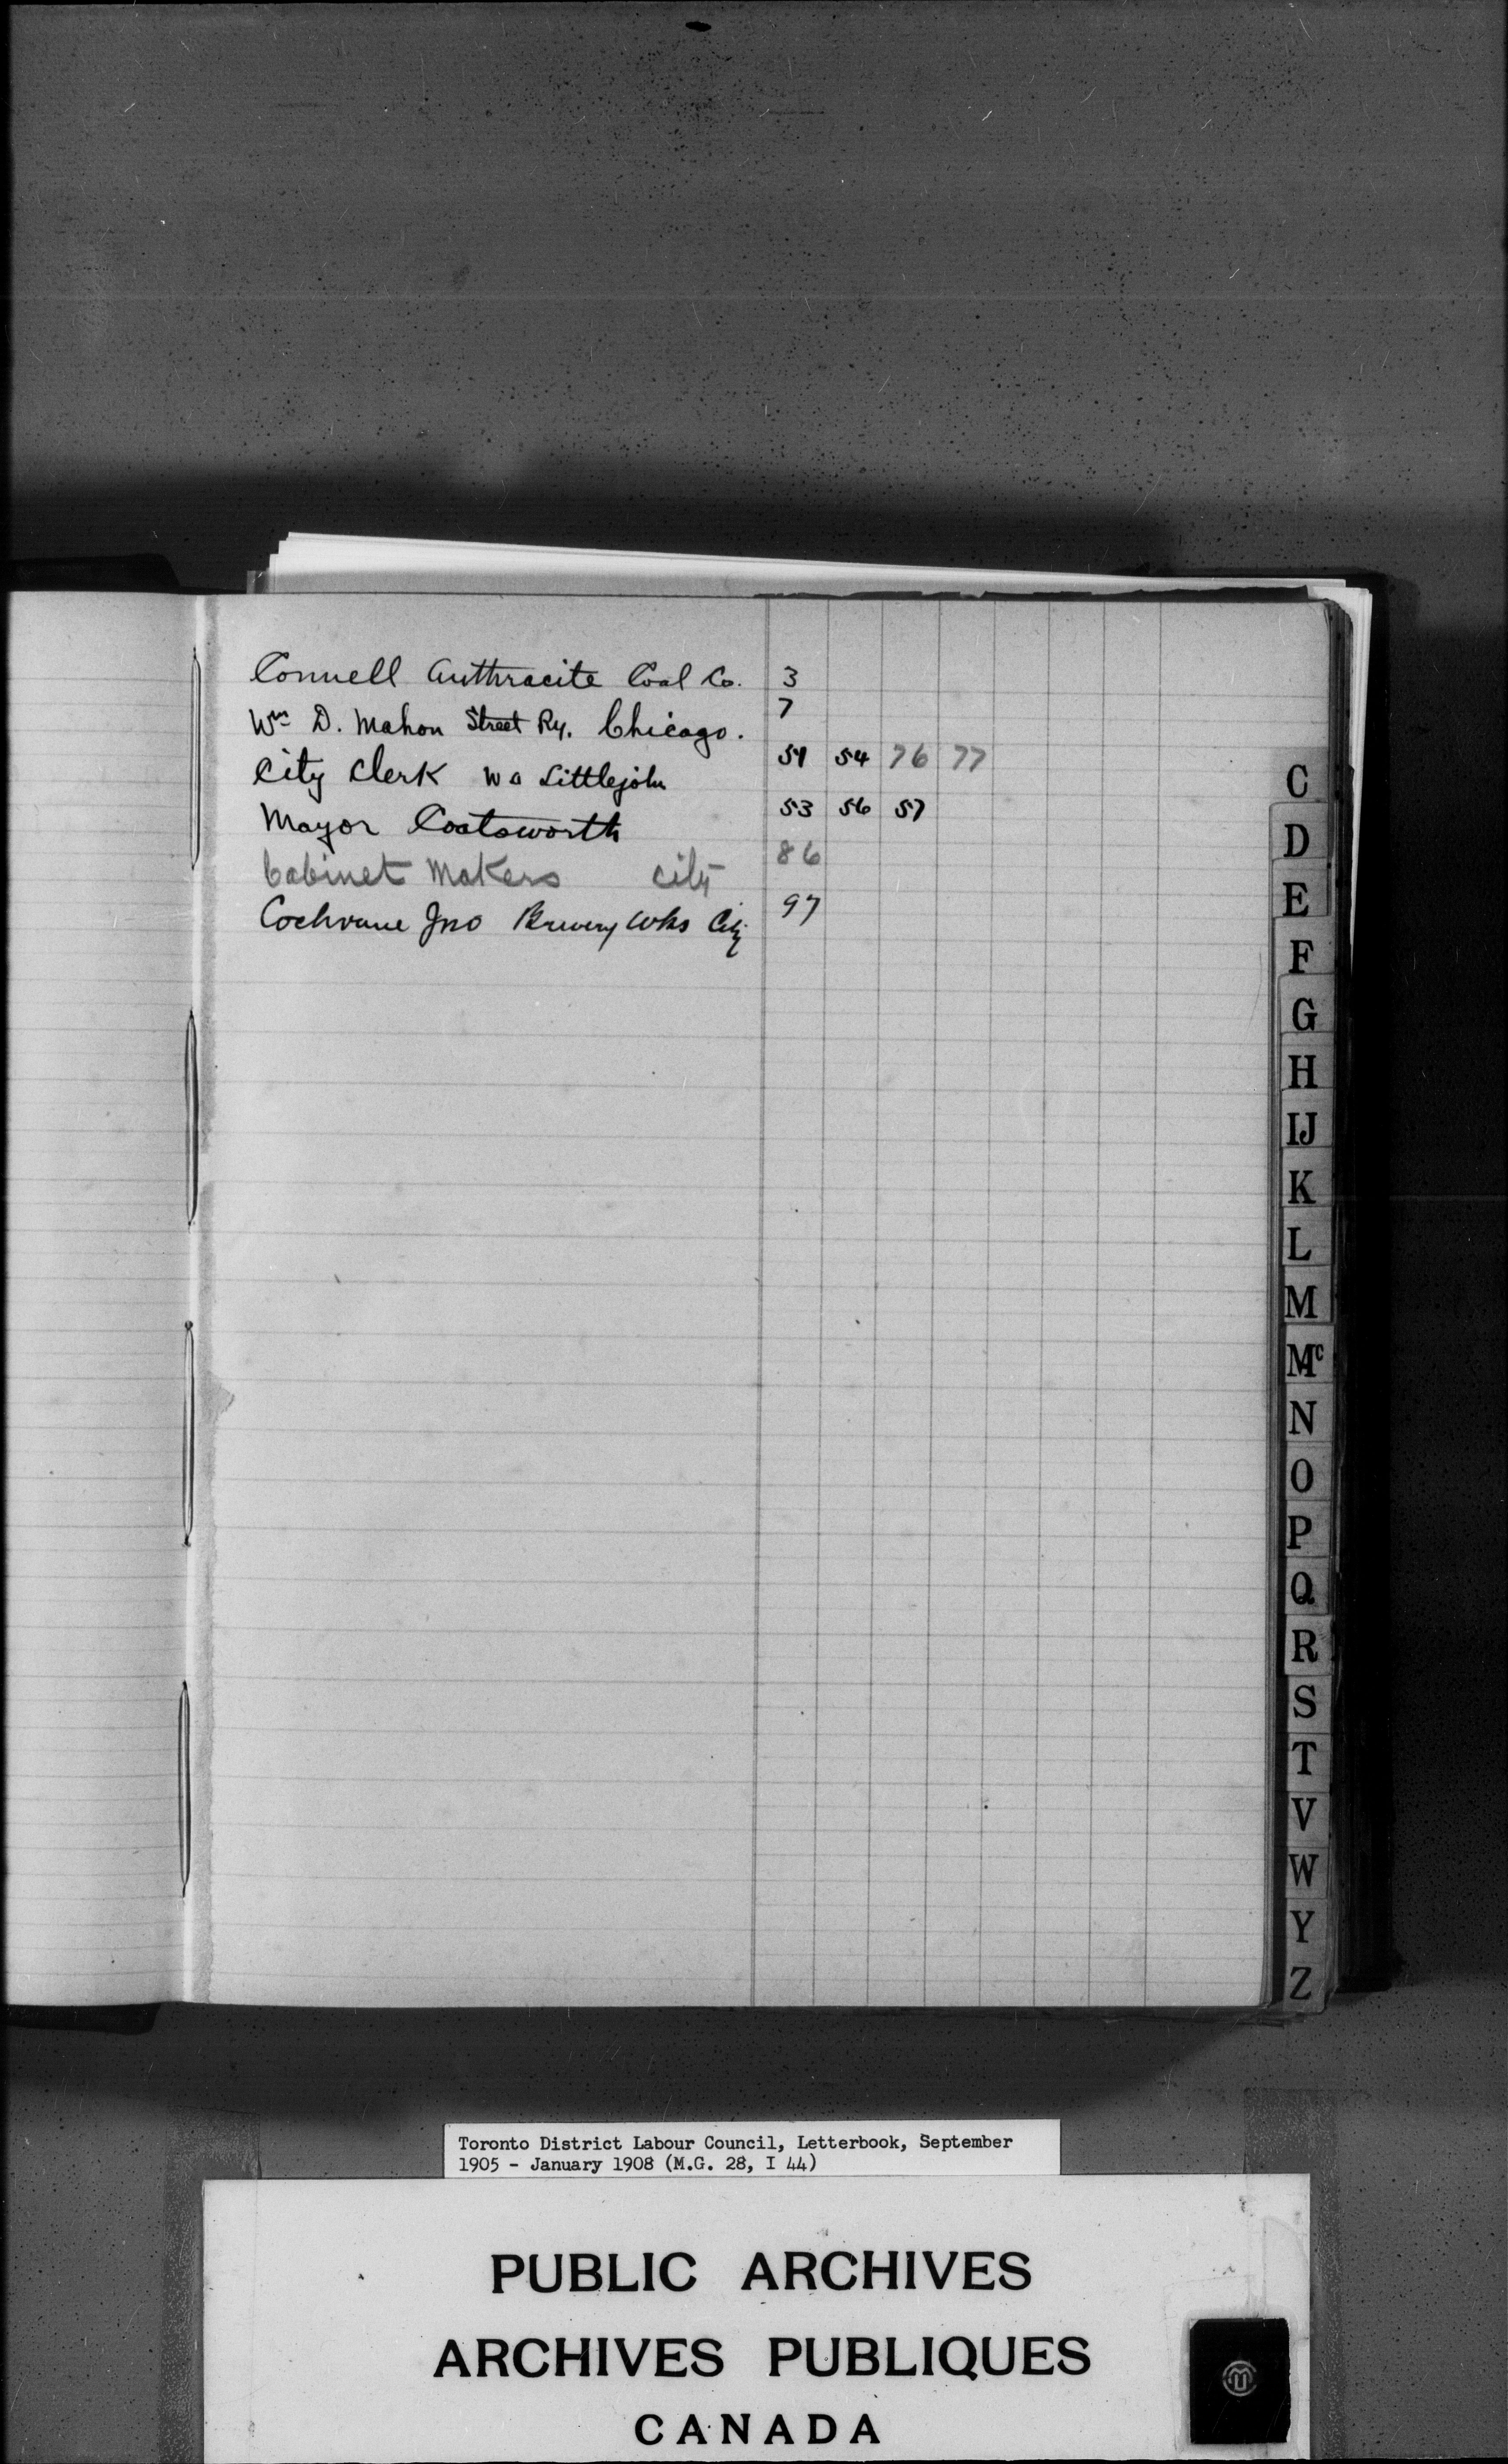 Connell Anthracite Coal Co. 3
Wm D. Mahon Street Ry. Chicago. 7
City Clerk W A Littlejohn 51 54 76 77
Mayor Coatsworth 53 56 57
Cabinet Makers City 86
Cochrane Jno Brewery Wks City 97
C
D
E
F
G
H
IJ
K
L
M
Mc
N
O
P
Q
R
S
T
V
W
Y
Z
Toronto District Labour Council, Letterbook, September
1905 - January 1908 (M.G. 28, I 44)
PUBLIC ARCHIVES
ARCHIVES PUBLIQUES
CANADA